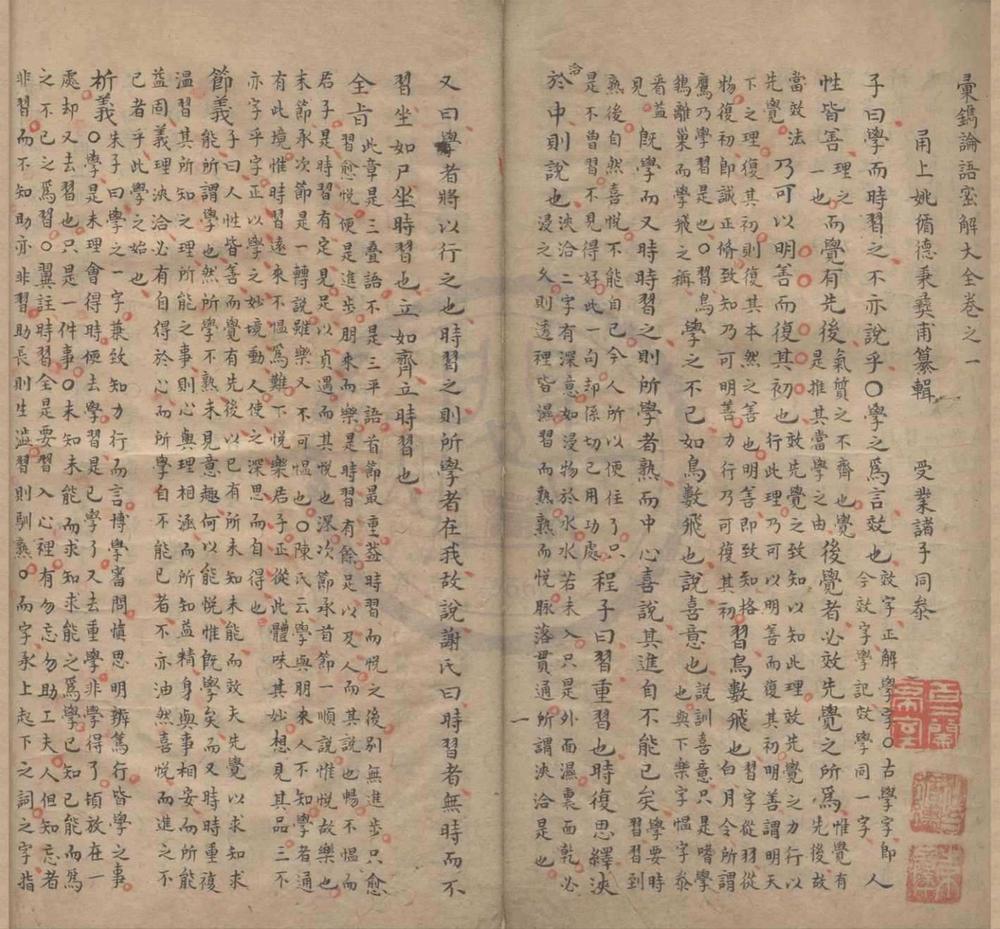 彙鐫論語密解大全卷之一
甬上姚循德秉彝甫纂輯 受業諸子同叅
子曰學而時習之不亦說乎○學之爲言效也效字正解學字○古學字即今效字學記效學同一字人
性皆善理之一也而覺有先後氣質之不齊也覺是推其當學之由後覺者必效先覺之所爲惟覺有先後故
當效法乃可以明善而復其初也效先覺之致知以知此理效先覺之力行以行此理乃可以明善而復其初明善謂明天
先覺下之理復其初則復其本然之善也明善即致知格物復初即誠正脩致知乃可明善力行乃可復其初習鳥數飛也習字從羽從白月令所謂
鷹乃學習是也○習鳥鶵離巢而學飛之稱學之不已如鳥數飛也說喜意也說訓喜意只是嗜學也與下樂字慍字叅
看益見旣學而又時時習之則所學者熟而中心喜說其進自不能已矣學要時習習到
熟後自然喜悅不能自已今人所以便住了只是不曾習不見得好此一句却係切己用功處程子曰習重習也時復思繹浹
洽於中則說也浹洽二字有深意如浸物於水水若未入只是外面濕裏面乾必浸之久則透裡皆濕習而熟熟而悅脈落貫通所謂浹洽是也
又曰學者將以行之也時習之則所學者在我故說謝氏曰時習者無時而不
習坐如尸坐時習也立如齊立時習也
全旨此章是三疊語不是三平語首節最重葢時習而悅之後別無進步只愈習愈悅便是進步朋來而樂是時習有餘足以及人而其說也暢不慍而
君子是時習有定見足以貞遇而其悅也深次節承首節一順說惟悅故樂也
末節承次節是一轉說雖樂又不可慍也○陳氏云學與朋來人不知學者通
有此境惟時習遠來不慍爲難下悅樂君子正從此體味其妙想見其品三不
亦字乎字正以學之妙境動人使之深思而自得也
節義子曰人性皆善而覺有先後以已有所未知未能而效夫先覺以求知求能所謂學也然所學不熟未見意趣何以能悅惟旣學矣而又時時重復
溫習其所知之理所能之事則心與理相涵而所知益精身與事相安而所能
益固義理浹洽必有自得於心而所學自不能已者不亦油然喜悅而進之不
已者乎此學之始也
析義朱子曰學之一字兼致知力行而言博學審問慎思明辨篤行皆學之事○學是未理會得時便去學習是已學了又去重學非學得了頃放在一
處却又去習也只是一件事○未知未能而求知求能之爲學已知已能而爲
之不已之爲習○翼註時習全是要習入心裡有勿忘勿助工夫人但知忘者
非習而不知助亦非習助長則生澁習則馴熟○而字承上起下之詞之字指
一